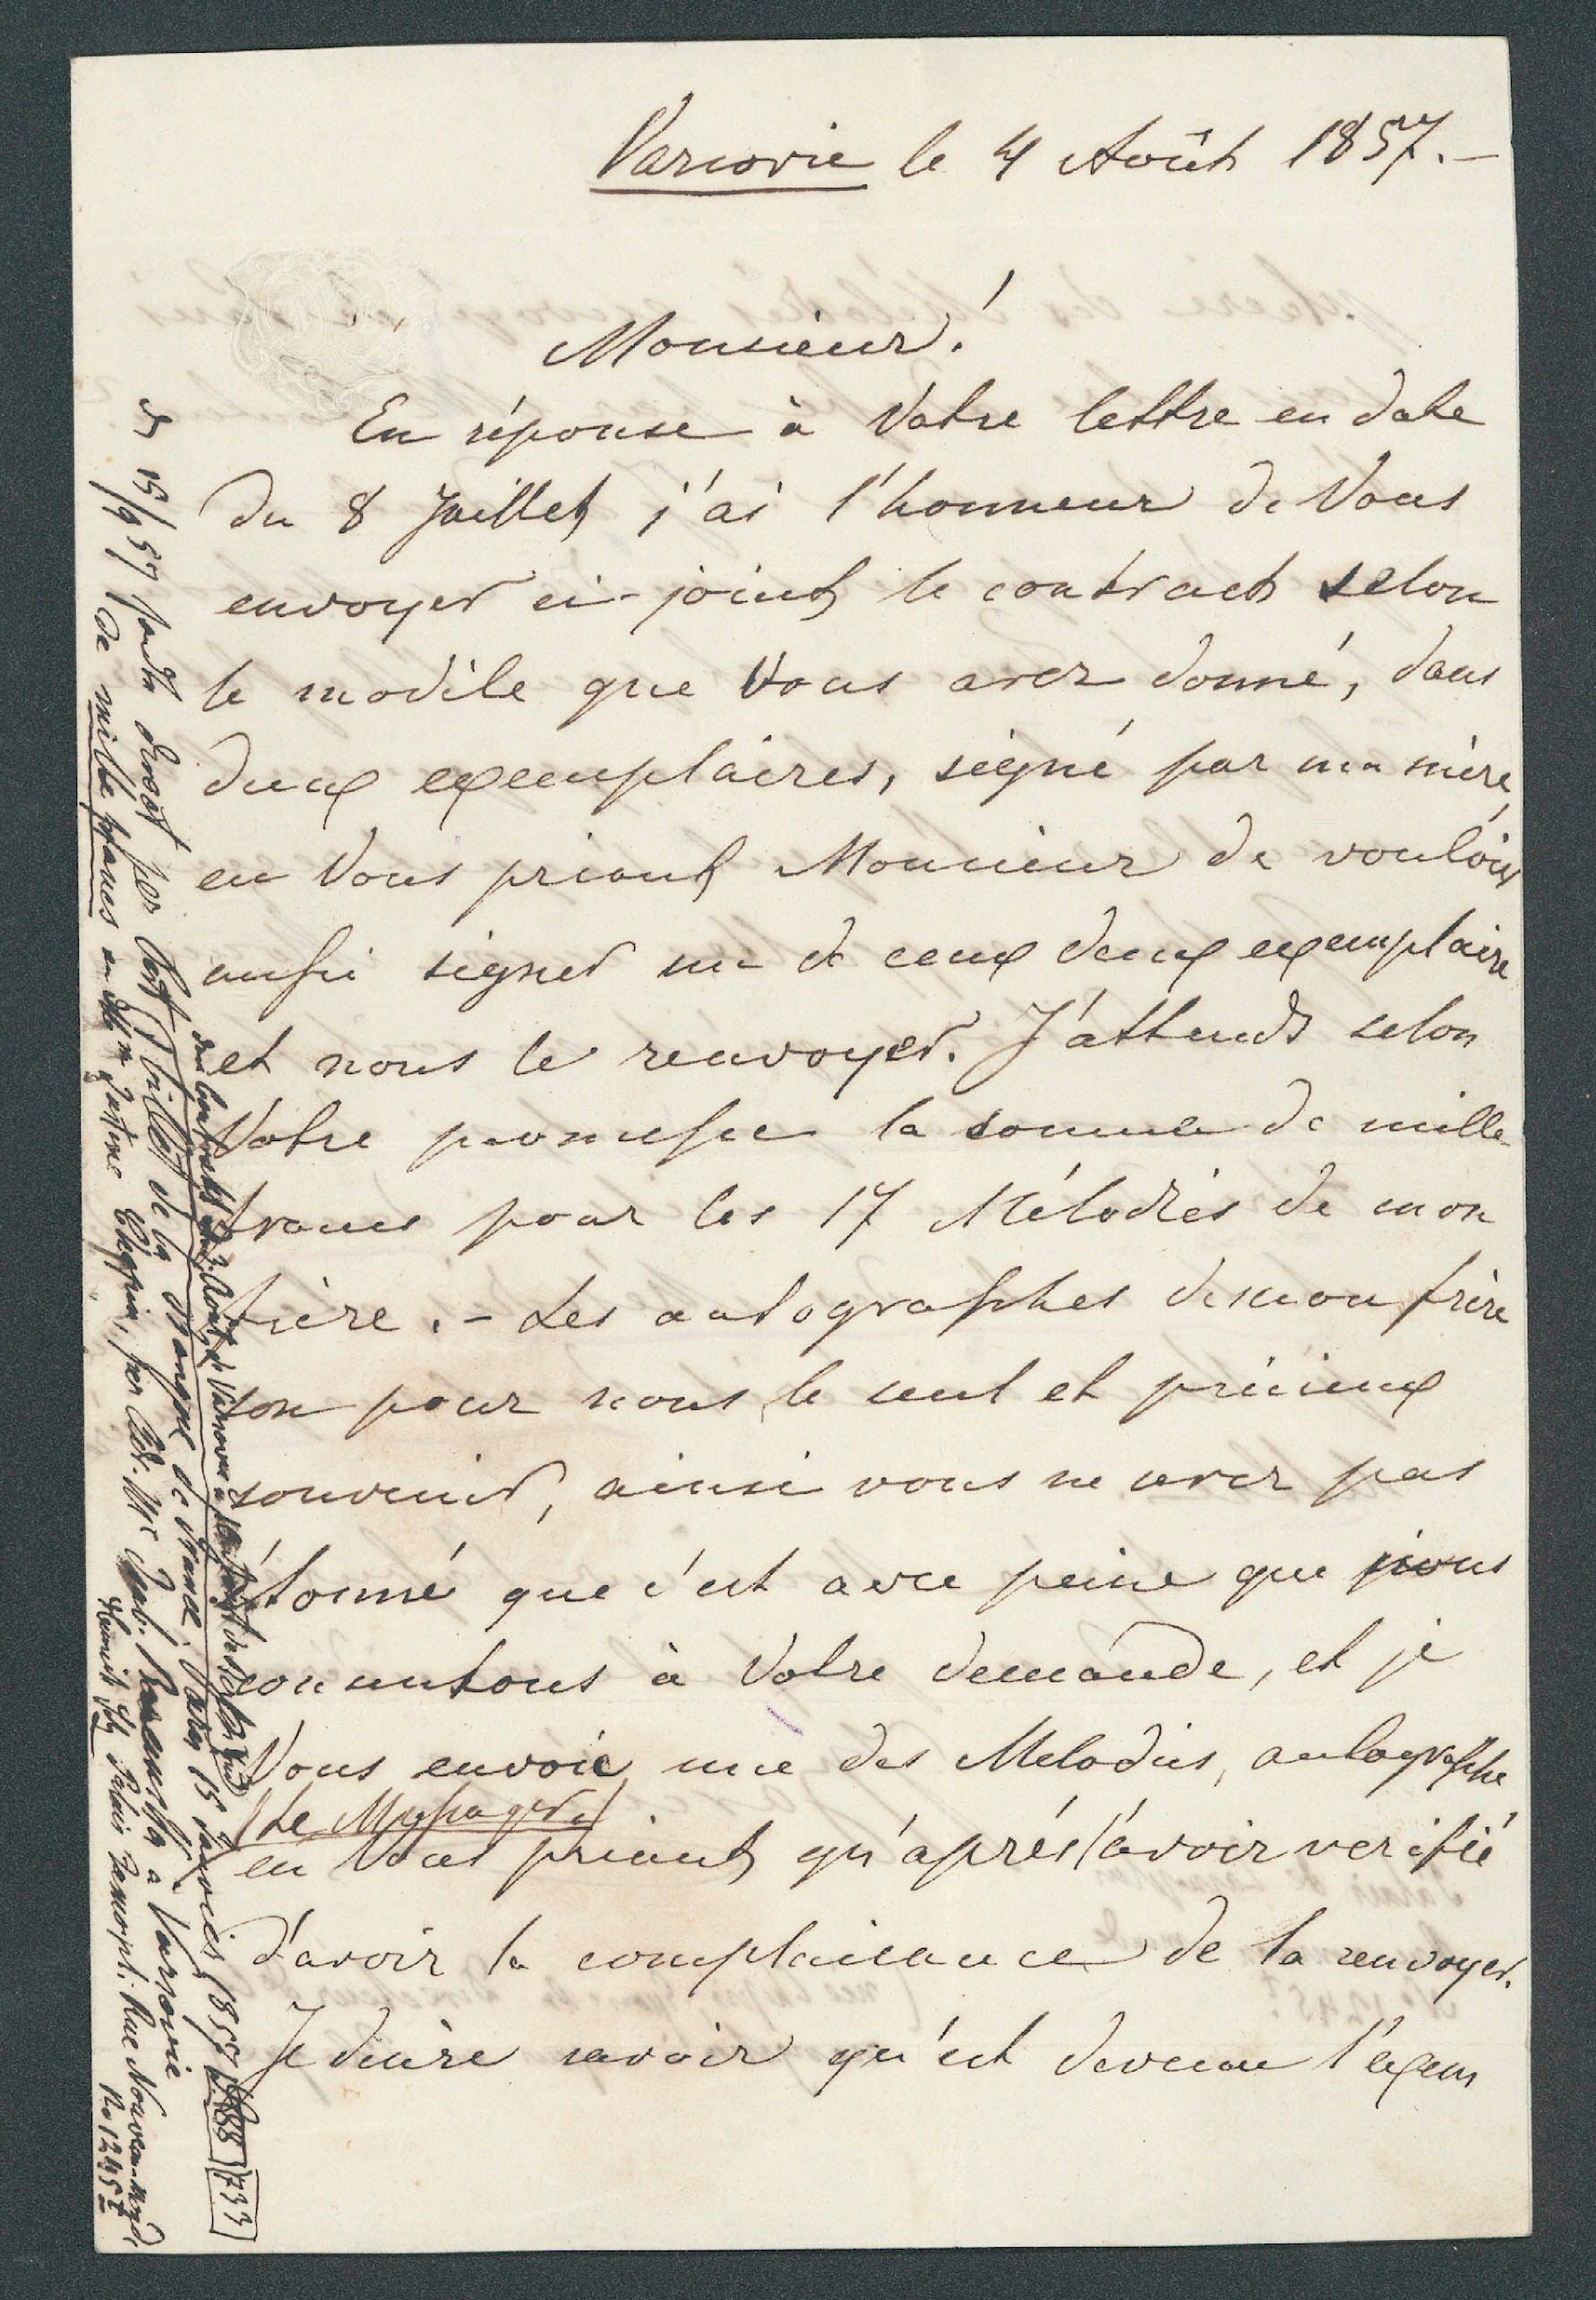 Varsovie le 4 Août 1857.-
Monsieur!
En réponse à Votre lettre en date
du 8 Juillet j'ai l'honneur de Vous
envoyer ci-joint le contract selon
le modèle que Vous avez donné, dans
deux exemplaires, signé par ma mère,
en Vous priant Monsieur de vouloir
aussi signer un de ceux deux exemplaire
et nous le renvoyer. J'attends selon
Votre promesse la somme de mille
francs pour les 17 Mélodies de mon
frère.- Les autographes de mon frère
son pour nous le seul et précieux
souvenir, ainsi vous ne serez pas
étonné que c'est avec peine que nous
consentons à Votre demande, et je
Vous envoie une des Melodies, autographe
(Le Messager)
en Vous priant qu'après l'avoir verifié
d'avoir la complaisance de la renvoyer.
Je désire savoir qu'est devenu l'exem
15/9 57 per
billet de la Banque de France, 15 Janvier 1857 733
de mille francs en Justine Chopin, per Adr. Mr à Varsovie
Palais Zamoyski. Rue Nouveau-
No 1245